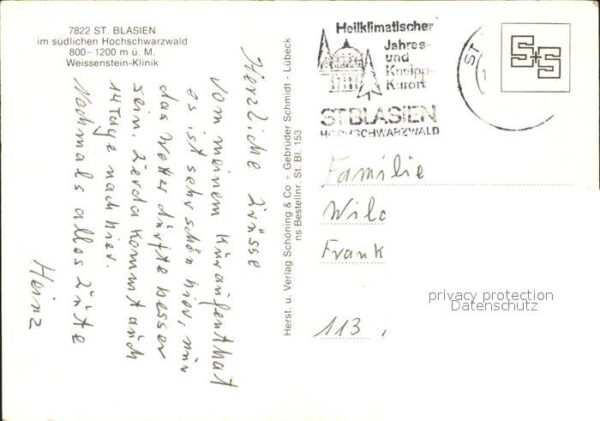 7822 ST. BLASIEN
im südlichen Hochschwarzwald
800–1200 m ü. M.
Weissenstein-Klinik
Herzliche Grüsse
vom meinem Kuraufenthat
es ist sehr schön hier, nur
das Wetter dürfte besser
sein. Gerda kommt auch
14 Tage nach hier.
Nochmals alles Gute
Heinz
Herst. u. Verlag Schöning & Co + Gebrüder Schmidt - Lübeck
ns Bestellnr. St. Bl. 153
Heilklimatischer
Jahres-
und
Kneipp-
Kurort
ST BLASIEN
HOCHSCHWARZWALD
ST
S+S
Familie
Wilc
Frank
113
privacy protection
Datenschutz